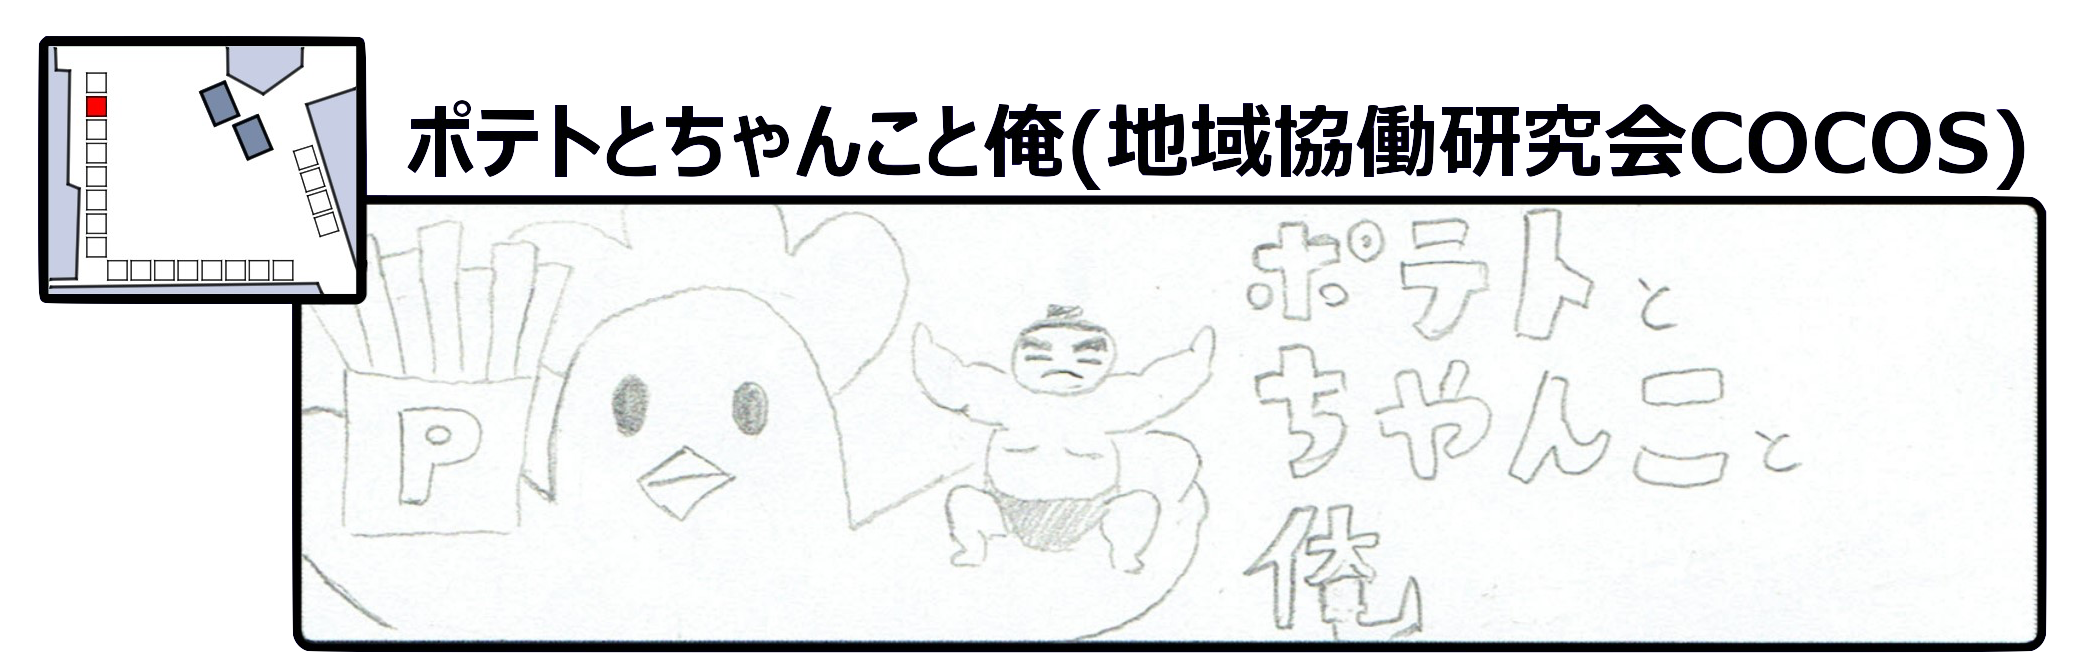 ポテトとちゃんこと俺(地域協働研究会COCOS)
P
ポテトと
ちゃんこと
俺